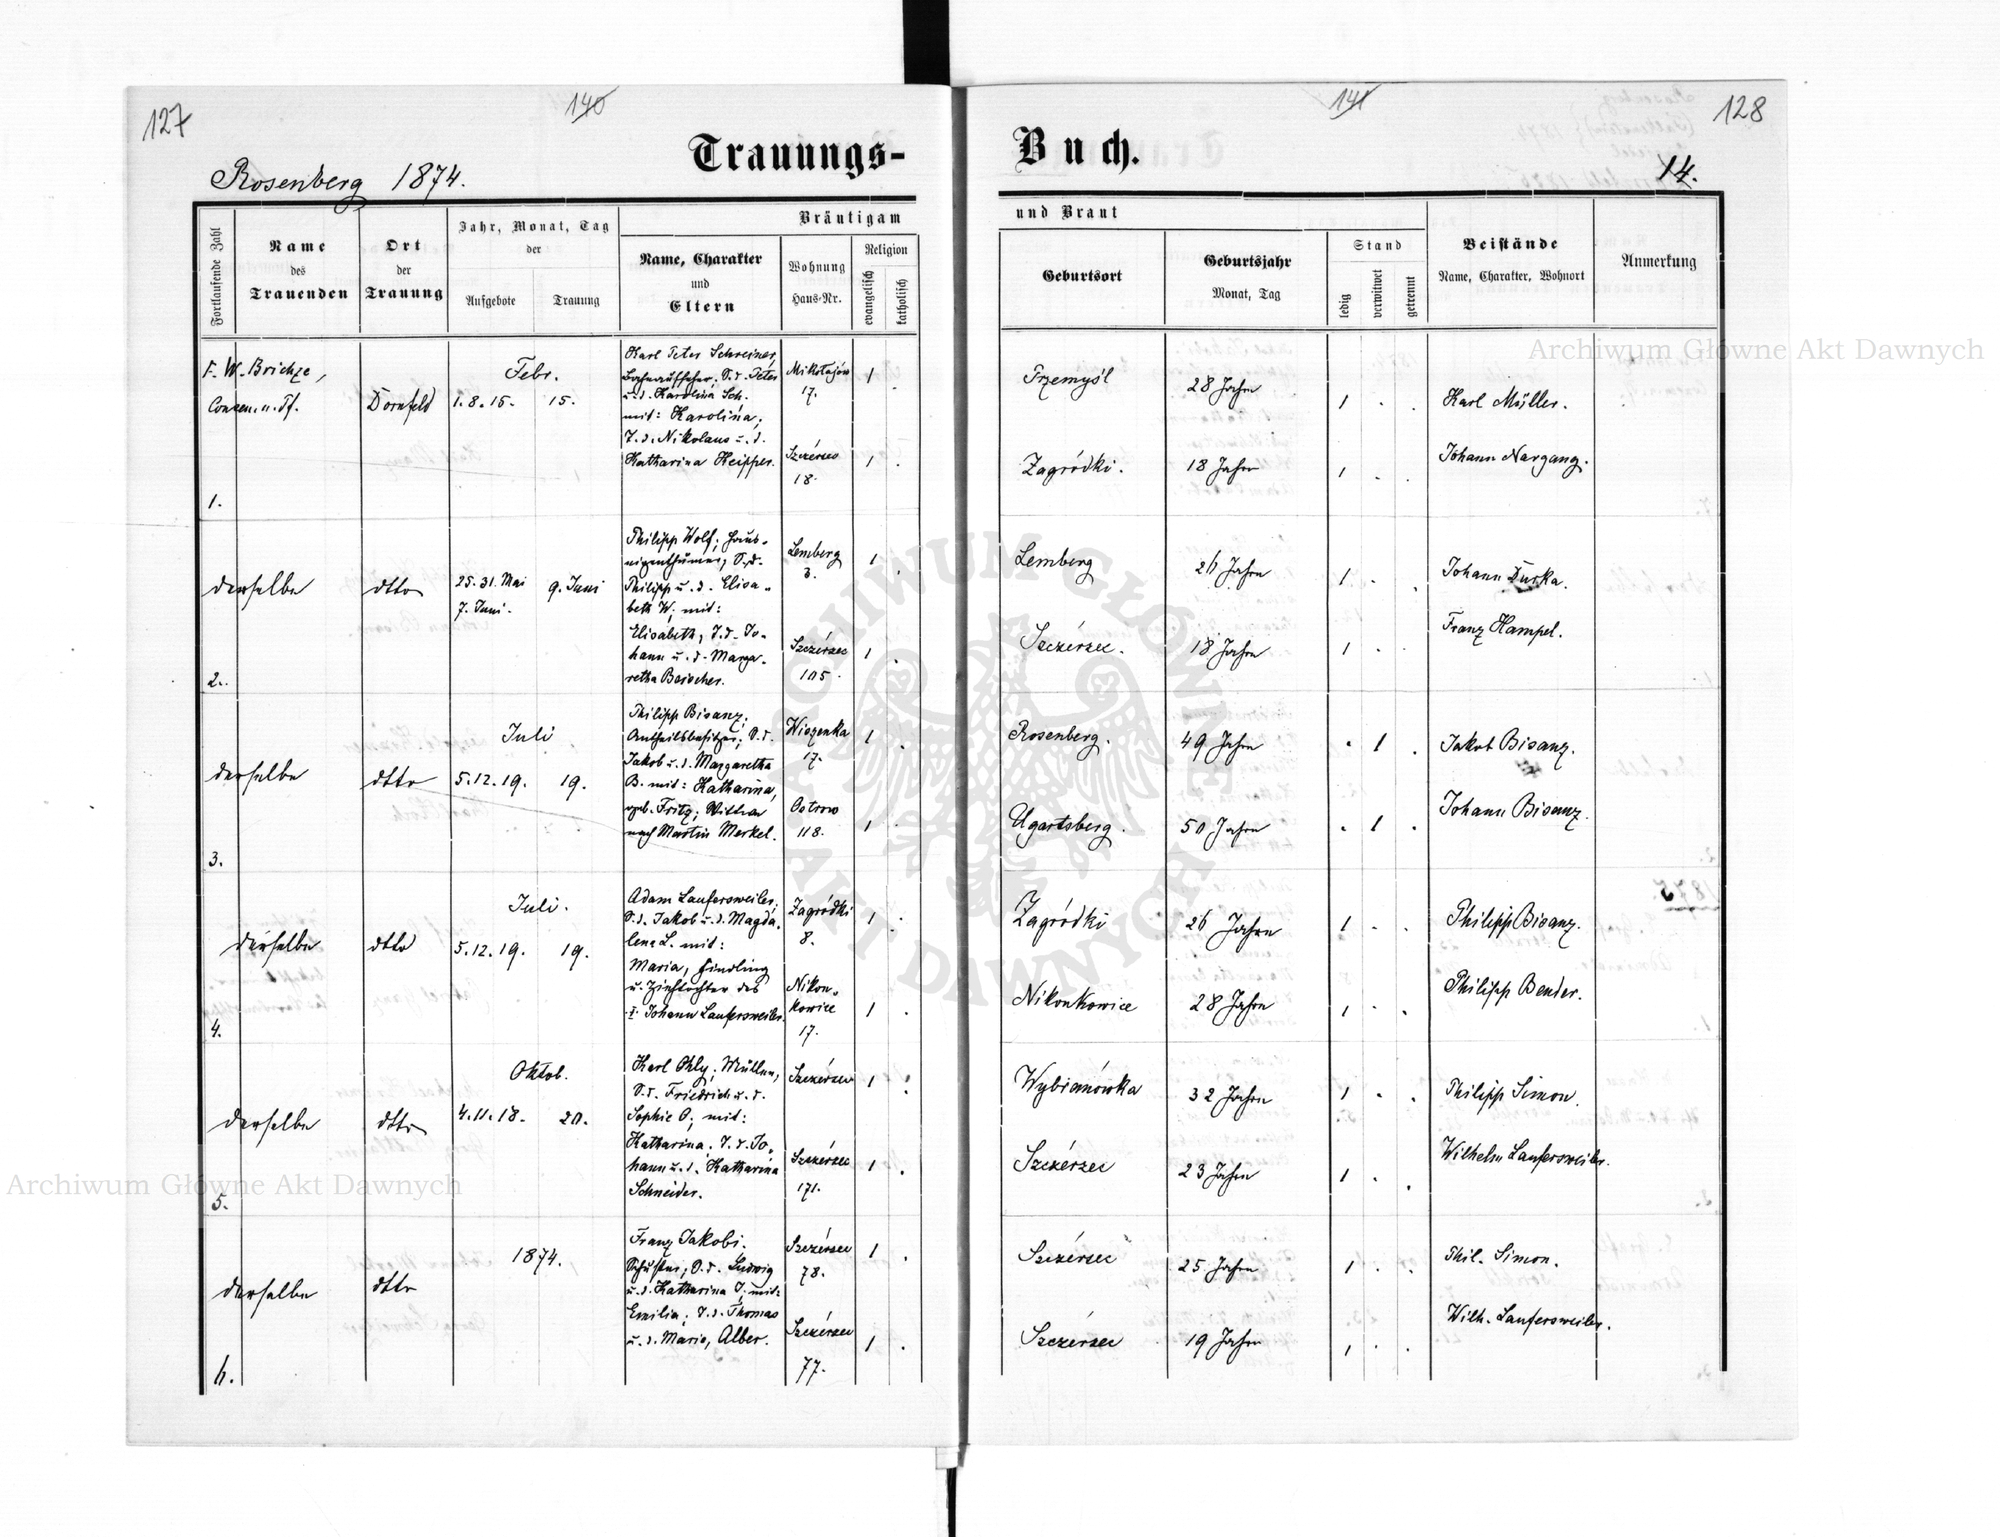 127
140
141
128
Rosenberg 1874.
Trauungs-
Buch.
14.
Fortlaufende Zahl
Name
des
Trauenden
Ort
der
Trauung
Jahr, Monat, Tag
der
Aufgebote
Trauung
Bräutigam
und Braut
Name, Charakter
und
Eltern
Wohnung
Haus-Nr.
Religion
evangelisch
katholisch
Geburtsort
Geburtsjahr
Monat, Tag
Stand
ledig
verwitwet
getrennt
Beistände
Name, Charakter, Wohnort
Anmerkung
1.
F. W. Brichze,
Consen. u. Pf.
Dornfeld
Febr.
1. 8. 15.
15.
Karl Peter Schreiner,
Bahnaufseher, S. d. Peter
u. d. Karolina Sch.
mit: Karolina,
T. d. Nikolaus u. d.
Katharina Keipper.
Mikołajow
17.
1
Szczérzec
18.
1
Przemyśl
28 Jahre
1
Zagródki.
18 Jahre
1
Karl Müller.
Johann Nargang.
2.
derselbe
dtto
25. 31. Mai
7. Juni.
9. Juni
Philipp Wolf, Haus-
eigenthümer, S. d.
Philipp u. d. Elisa-
beth W. mit:
Elisabeth, T. d. Jo-
hann u. d. Marga-
retha Beischer.
Lemberg
3.
1
Szczérzec
105.
1
Lemberg
26 Jahre
1
Szczérzec.
18 Jahre
1
Johann
Franz Hampel.
3.
derselbe
dtto
Juli
5. 12. 19.
19.
Philipp Bisanz,
Antheilsbesitzer, S. d.
Jakob u. d. Margaretha
B. mit: Katharina,
geb. Fritz, Wittwe
nach Martin Merkel.
Wiszenka
17.
1
Ostrow
118.
1
Rosenberg.
49 Jahre
1
Ugartsberg.
50 Jahre
1
Jakob Bisanz.
Johann Bisanz.
4.
derselbe
dtto
Juli.
5. 12. 19.
19.
Adam Laufersweiler,
S. d. Jakob u. d. Magda-
lena L. mit:
Maria, Findling
u. Ziehtochter des
Johann Laufersweiler.
Zagródki
8.
1
Nikon-
kowice
17.
1
Zagródki
26 Jahre
1
Nikonkowice
28 Jahre
1
Philipp Bisanz.
Philipp Bender.
5.
derselbe
dtto
Oktob.
4. 11. 18.
20.
Karl Ohly, Müller,
S. d. Friedrich u. d.
Sophie O; mit:
Katharina, T. d. Jo-
hann u. d. Katharina
Schneider.
Szczérzec
1
Szczérzec
171.
1
Wybranówka
32 Jahre
1
Szczérzec
23 Jahre
1
Philipp Simon.
Wilhelm Laufersweiler.
6.
derselbe
dtto
1874.
Franz Jakobi,
Schuster, S. d. Ludwig
u. d. Katharina J. mit:
Emilia, T. d. Thomas
u. d. Maria, Alber.
Szczérzec
78.
1
Szczérzec
77.
1
Szczérzec
25 Jahre
1
Szczérzec
19 Jahre
1
Phil. Simon.
Wilh. Laufersweiler.
Archiwum Główne Akt Dawnych
Archiwum Główne Akt Dawnych
ARCHIWUM GŁÓWNE
AKT DAWNYCH